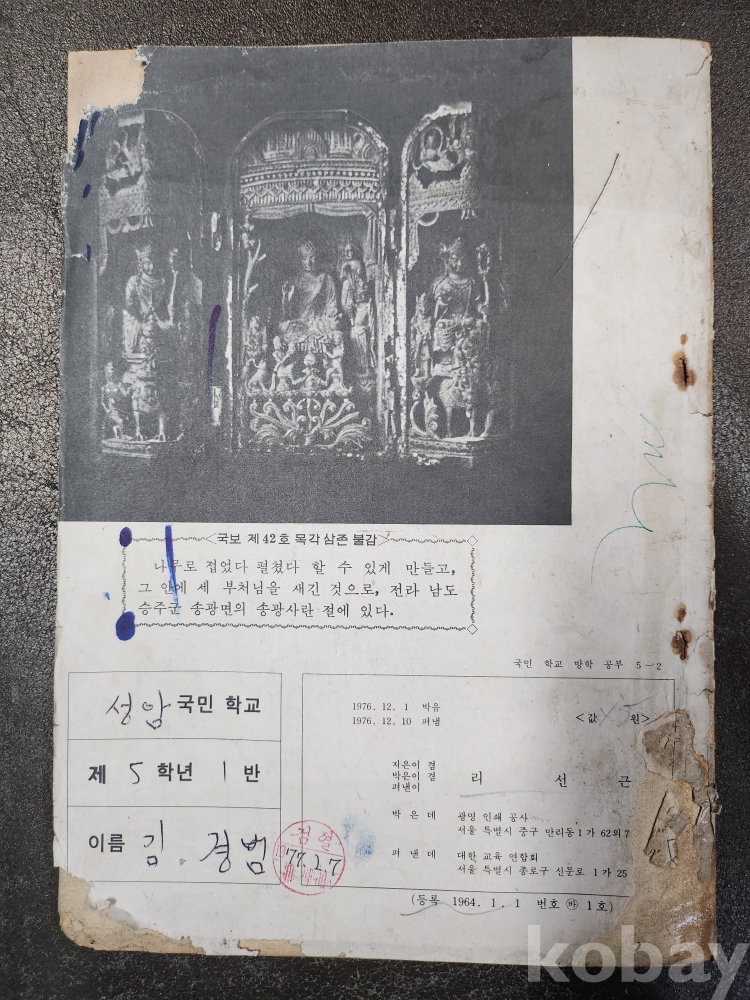 <국보 제42호 목각 삼존 불감>
나무로 접었다 펼쳤다 할 수 있게 만들고,
그 안에 세 부처님을 새긴 것으로, 전라 남도
승주군 송광면의 송광사란 절에 있다.
국민 학교 방학 공부 5-2
성암 국민 학교
제 5 학년 1 반
이름 김 경범
검열
'77.2.7
1976. 12. 1 박음
1976. 12. 10 펴냄
<값 원>
지은이 겸
박은이 겸
펴낸이
리 선 근
박 은 데 광명 인쇄 공사
서울 특별시 중구 만리동 1 가 62의 7
펴 낸 데 대한 교육 연합회
서울 특별시 종로구 신문로 1 가 25
(등록 1964. 1. 1 번호 ㉳ 1 호)
kobay